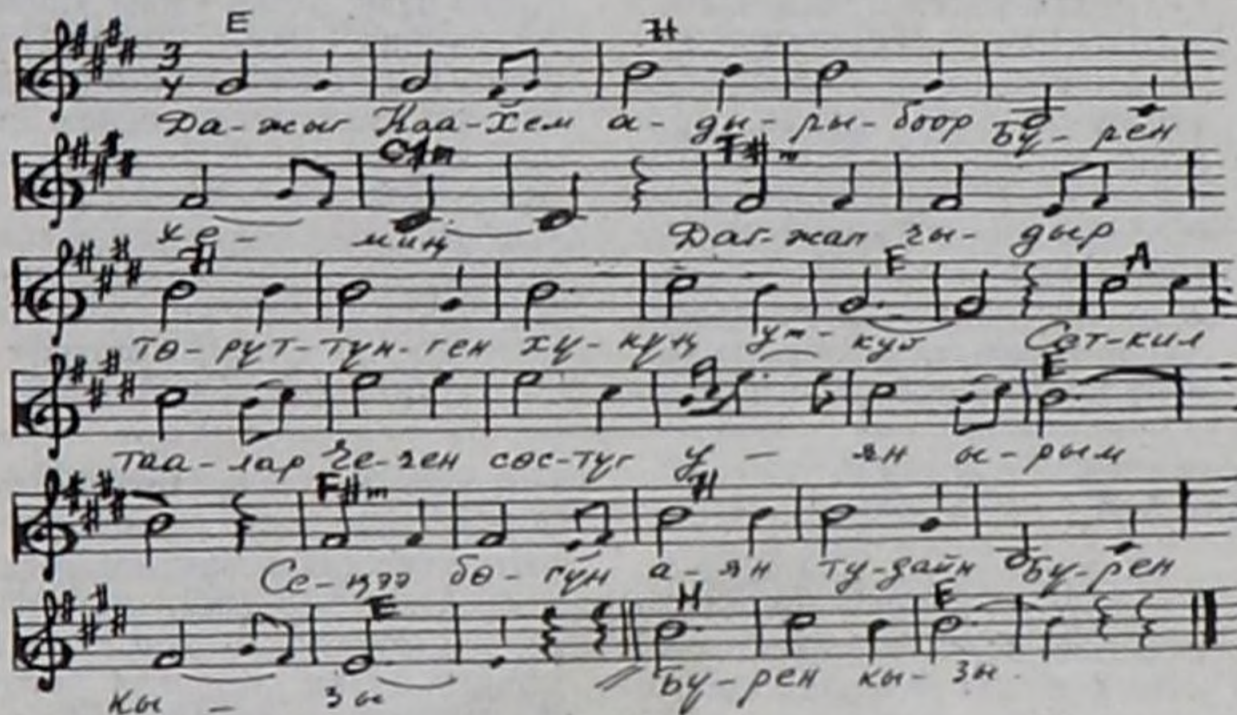 E H
3/4
Да-жыг Каа-Хем а-ды-ры-боор Бү-рен
C#m F#m
хе-миң Даг-жап чы-дыр
H E A
тө-рүт-түн-ген хү-нүң ут-куй Сет-кил
A E
таа-лар че-чен сөс-түг у — ян ы-рым
F#m H
Се-ңээ бө-гүн а-ян ту-дайн Бү-рен
E H E
кы — зы // Бү-рен кы-зы.